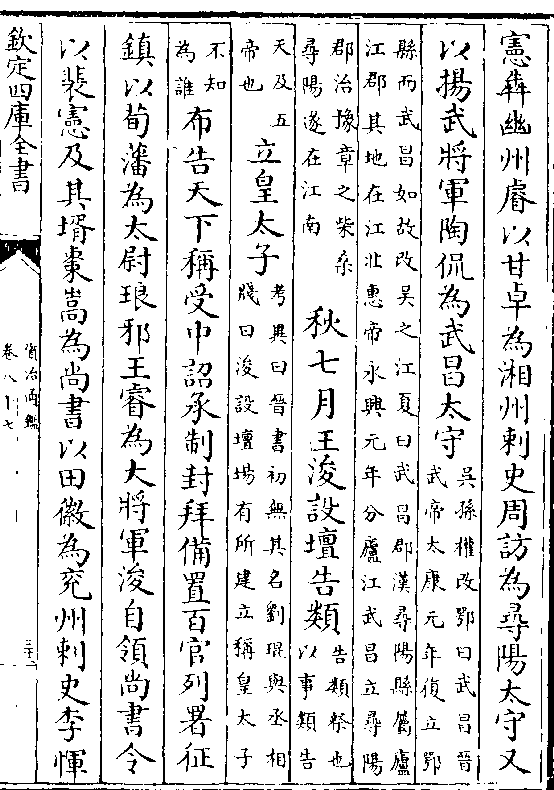 憲犇幽州睿以甘卓為湘州刺史周訪為尋陽太守又
以揚武將軍陶侃為武昌太守吳孫權改鄂曰武昌晉武帝太康元年復立鄂
縣而武昌如故改吳之江夏曰武昌郡漢尋陽縣屬廬江郡其地在江北惠帝永興元年分廬江武昌立尋陽
郡治豫章之柴桑尋陽遂在江南秋七月王浚設壇告類告類祭也以事類告
天及五帝也立皇太子考異曰晉書初無其名劉琨與丞相牋曰浚設壇場有所建立稱皇太子
不知為誰布告天下稱受中詔承制封拜備置百官列署征
鎮以荀藩為太尉琅邪王睿為大將軍浚自領尚書令
以裴憲及其壻棗嵩為尚書以田徽為兖州刺史李惲
欽定四庫全書
資治通鑑
卷八十七